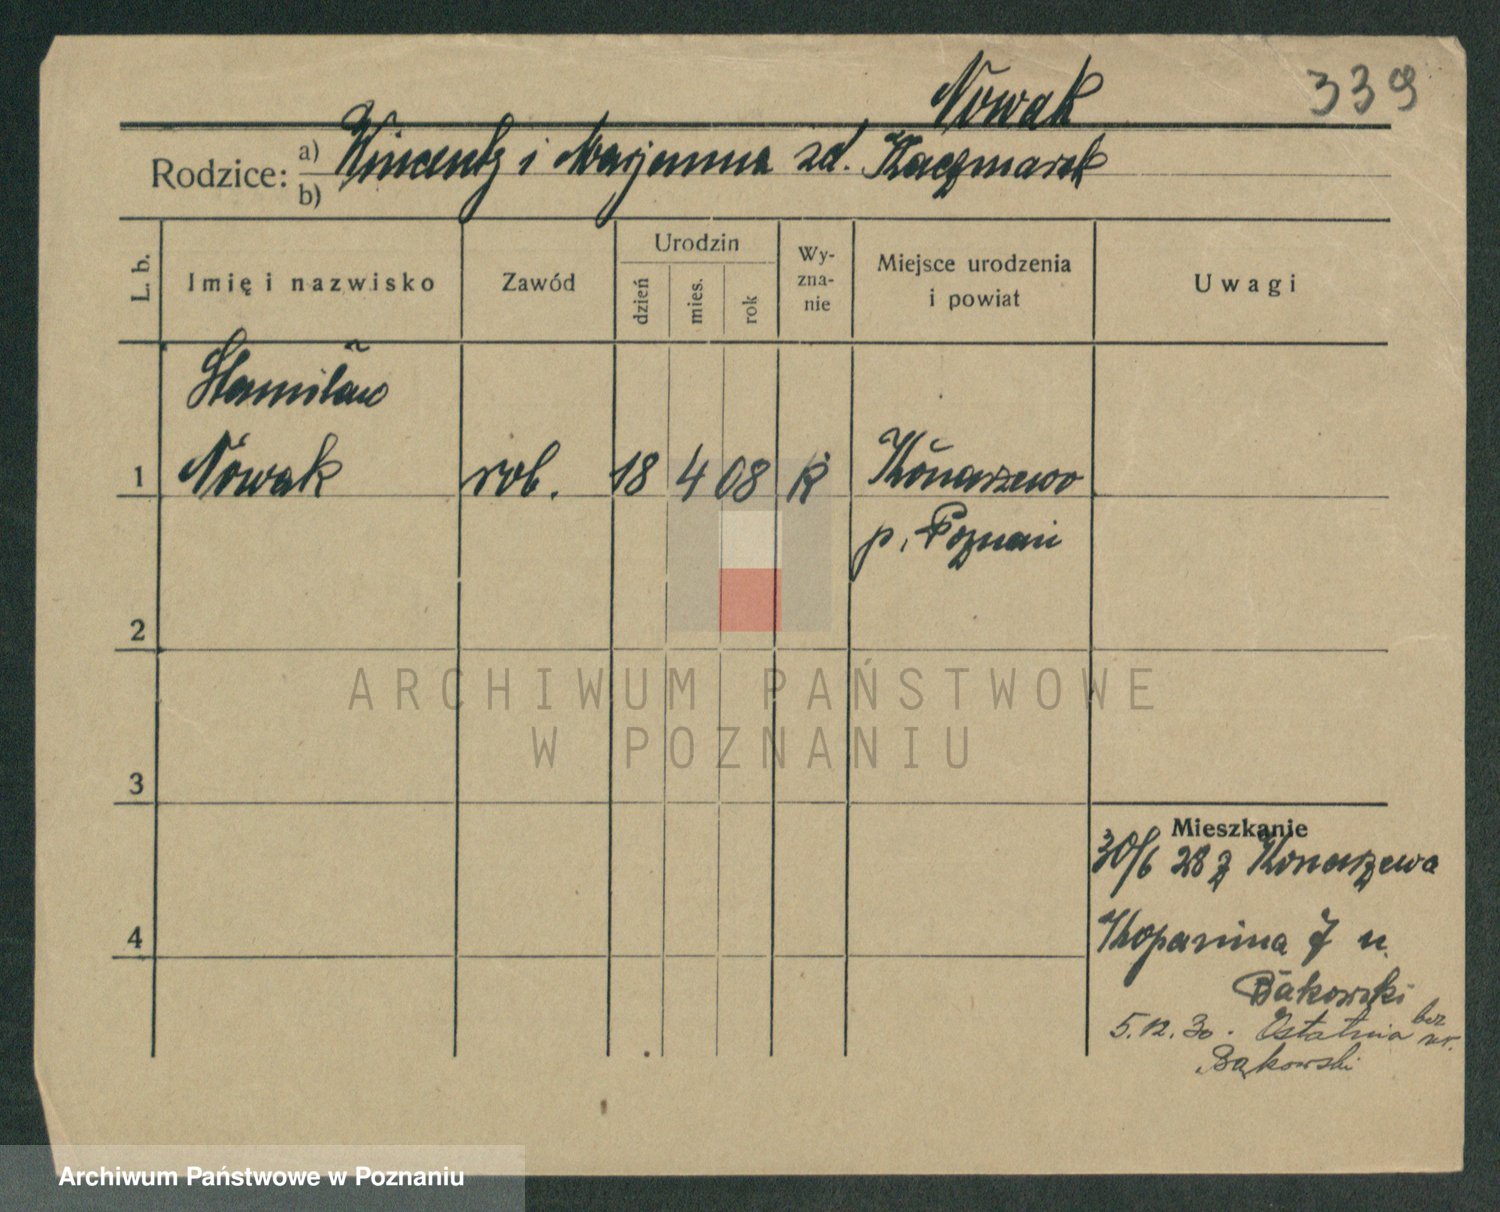 Nowak
339
Rodzice: a) b) Wincenty i Marjanna zd. Kaczmarek
L. b.
Imię i nazwisko
Zawód
Urodzin
dzień
mies.
rok
Wy-
zna-
nie
Miejsce urodzenia
i powiat
Uwagi
Stanisław
1 Nowak rob. 18 4 08 k Konarzewo
p. Poznań
2
ARCHIWUM PAŃSTWOWE
W POZNANIU
3
Mieszkanie
30/6 28 z Konarzewa
4
Kopanina 7 u.
Bąkowski
5.12.30. Ostatnia bez nr.
Bąkowski
Archiwum Państwowe w Poznaniu